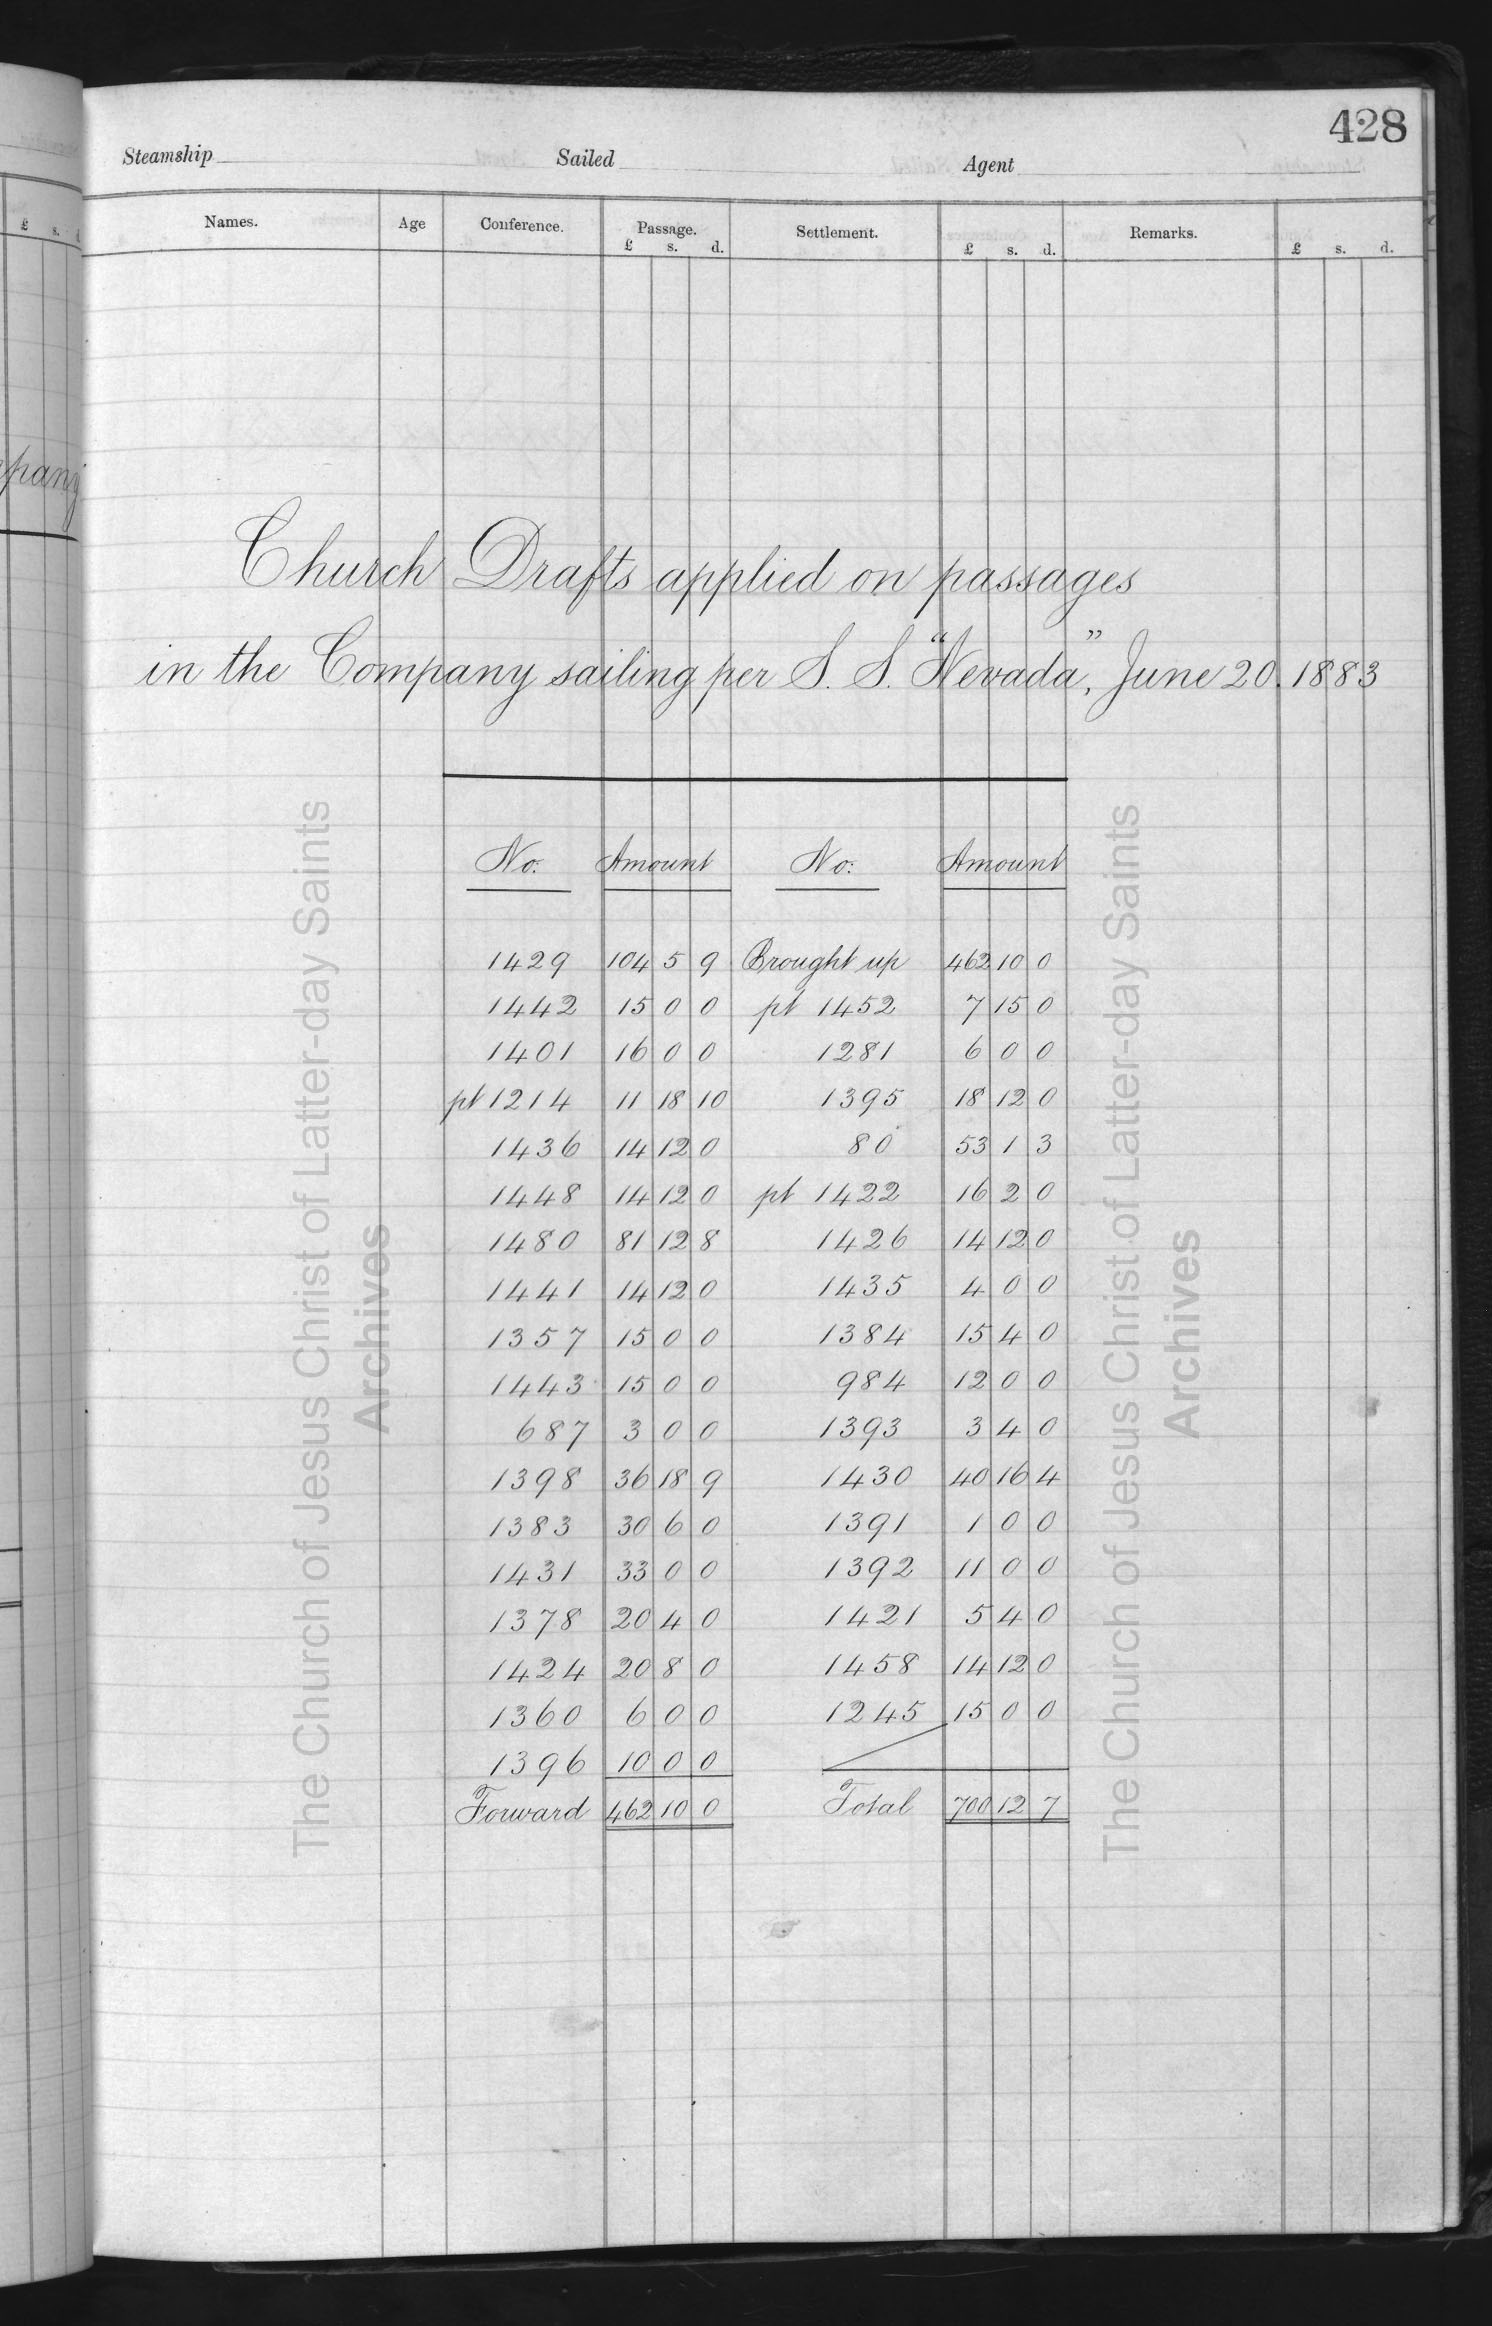 428
Steamship Sailed Agent
Names. Age Conference. Passage. Settlement. Remarks.
£ s. d. £ s. d. £ s. d.
Church Drafts applied on passages
in the Company sailing per S. S. "Nevada," June 20. 1883
No. Amount No. Amount
1429 104 5 9 Brought up 462 10 0
1442 15 0 0 pt 1452 7 15 0
1401 16 0 0 1281 6 0 0
pt 1214 11 18 10 1395 18 12 0
1436 14 12 0 80 53 1 3
1448 14 12 0 pt 1422 16 2 0
1480 81 12 8 1426 14 12 0
1441 14 12 0 1435 4 0 0
1357 15 0 0 1384 15 4 0
1443 15 0 0 984 12 0 0
687 3 0 0 1393 3 4 0
1398 36 18 9 1430 40 16 4
1383 30 6 0 1391 1 0 0
1431 33 0 0 1392 11 0 0
1378 20 4 0 1421 5 4 0
1424 20 8 0 1458 14 12 0
1360 6 0 0 1245 15 0 0
1396 10 0 0
Forward 462 10 0 Total 700 12 7
The Church of Jesus Christ of Latter-day Saints
Archives
The Church of Jesus Christ of Latter-day Saints
Archives